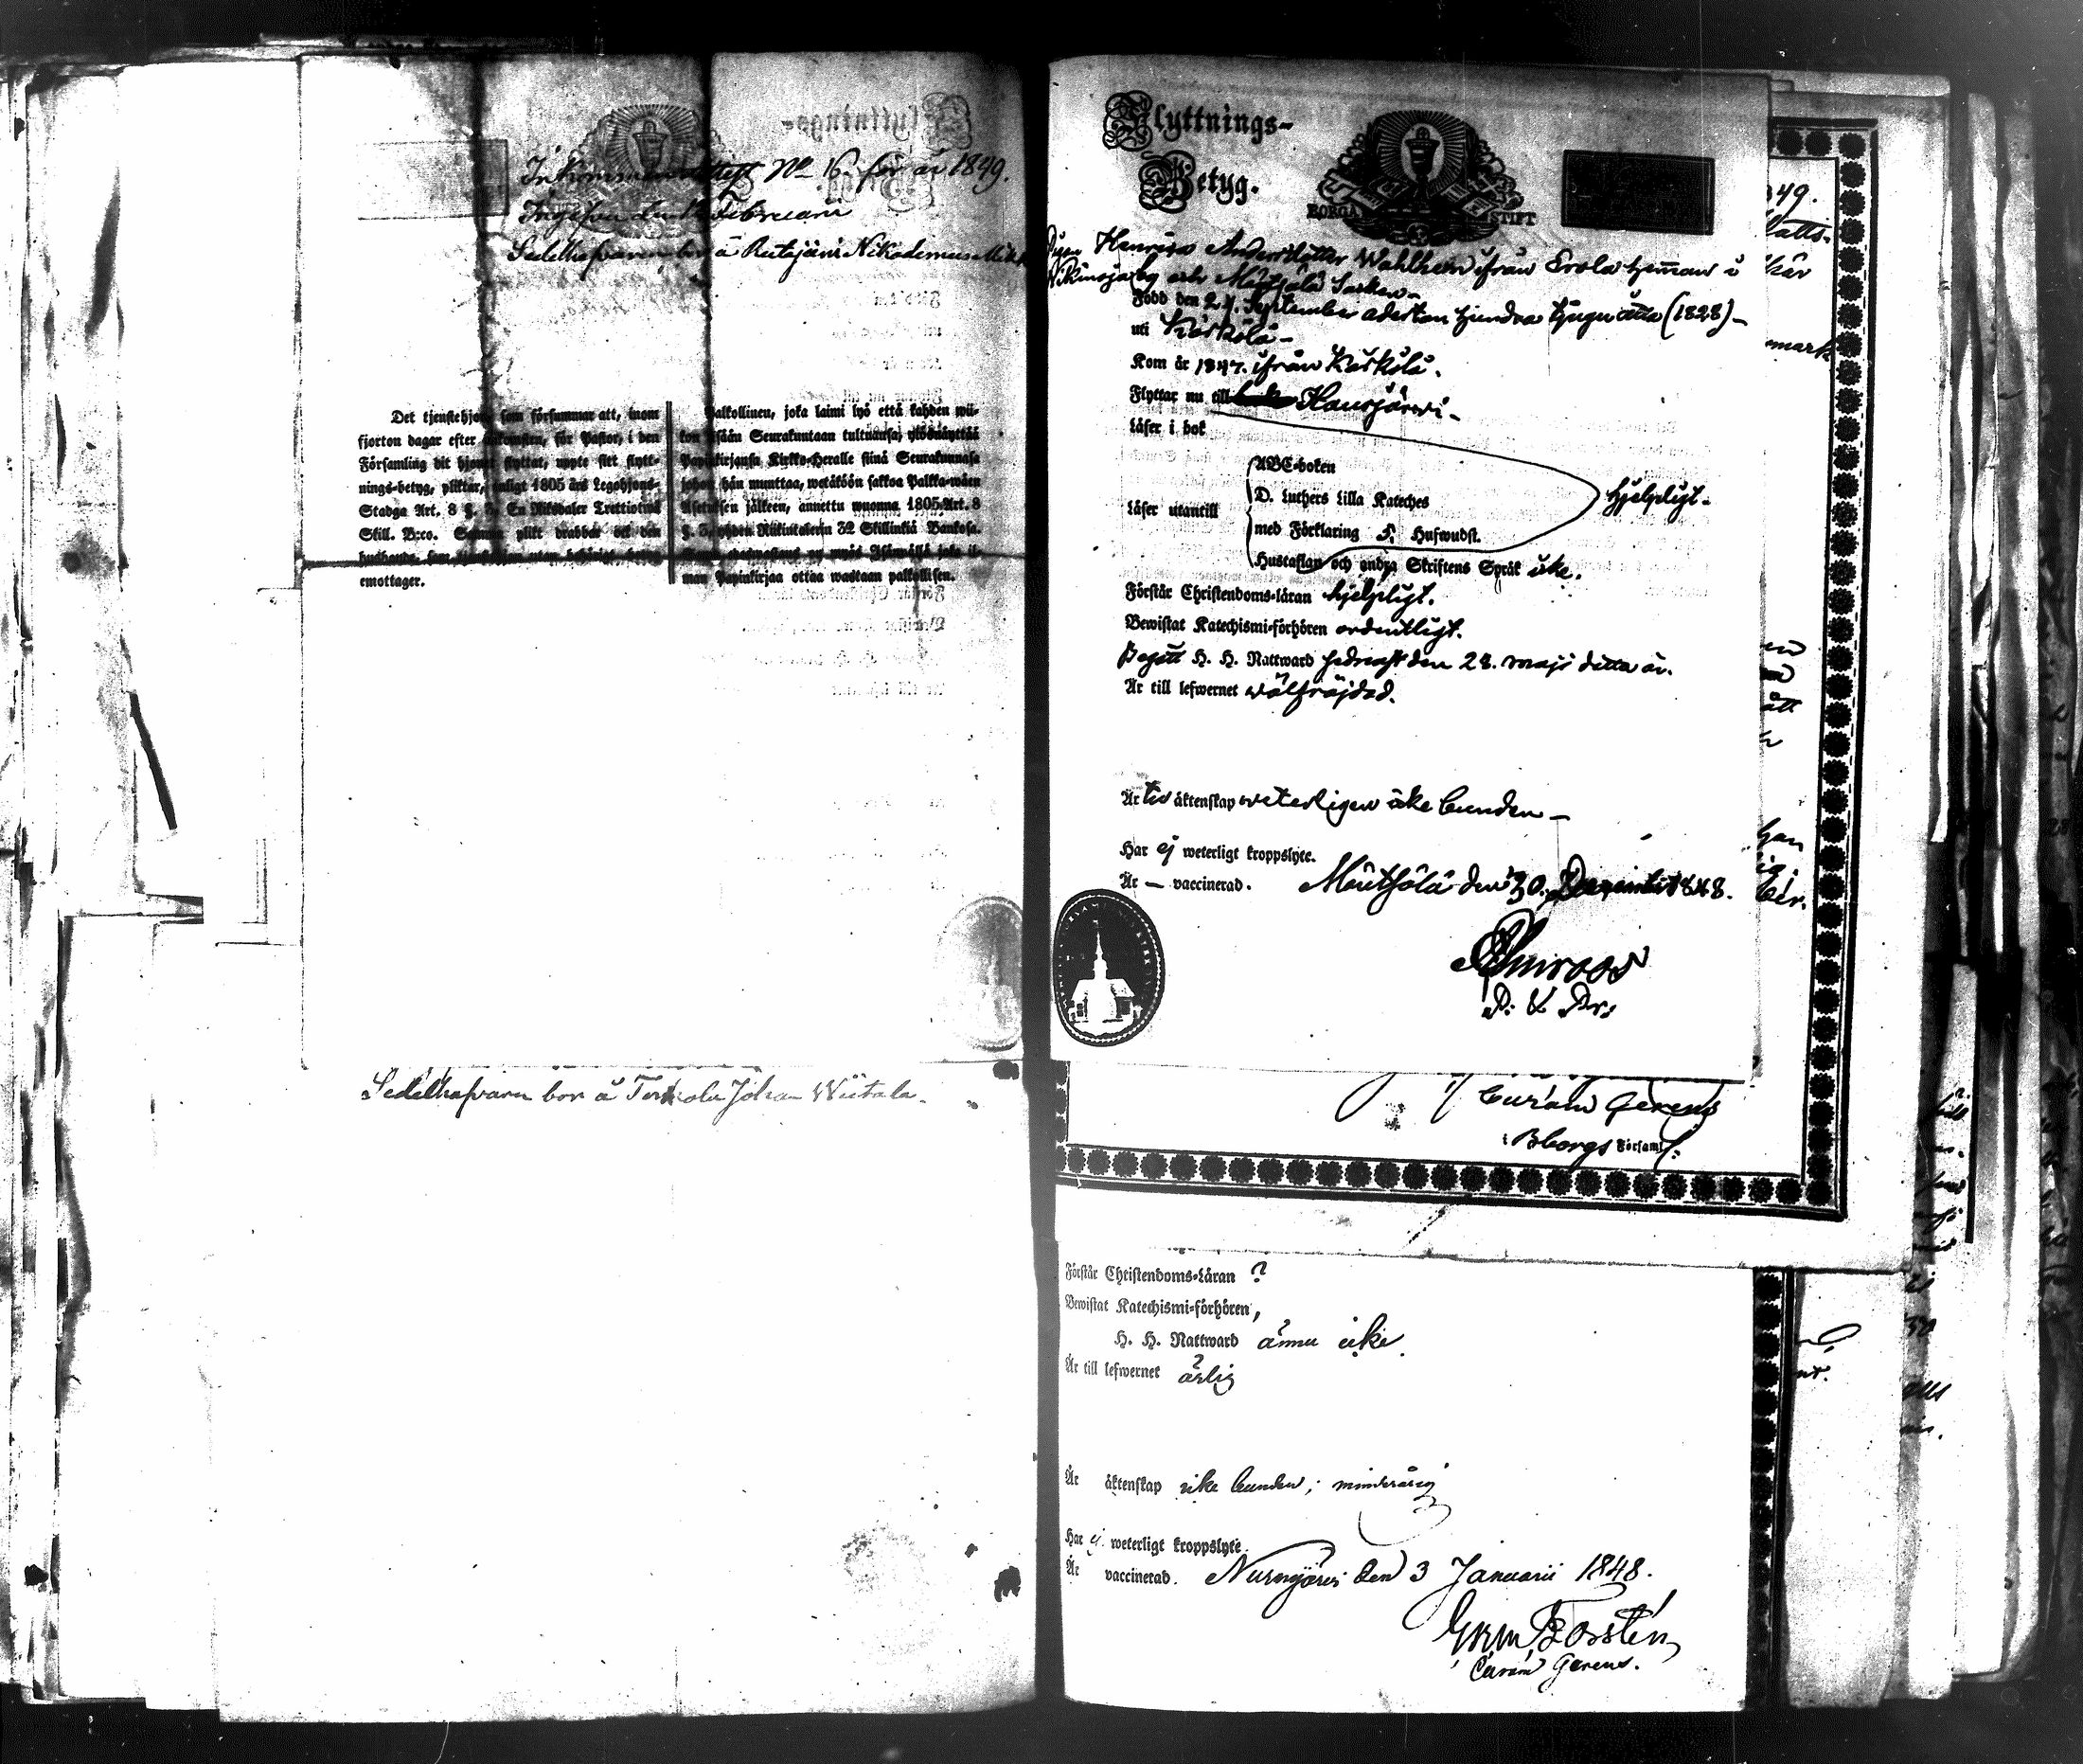 Inkommen attest No 16. för år 1849.
Ingifven den Februarii
Sedelhafvaren bor å Nikodemus
Det tjenstehjon, som försummar att, inom
fjorton dagar efter ankomsten, för Pastor, i den
Församling dit hjonet flyttat, uppte sitt flytt-
nings-betyg, pliktar, enligt 1805 års Legohjons-
Stadga Art. 8 §. 3, En Riksdaler Trettiotvå
Skill. B:co. Samma plikt drabbar ock den
husbonde, som tjenstehjon utan behörigt betyg
emottager.
Palkollinen, joka laimi lyö että kahden wii-
kon sisään Seurakuntaan tultuansa, ylösnäyttää
Papinkirjansa Kirkko-Herralle siinä Seurakunnasa
johon hän muuttaa, wetäköön sakkoa Palkka-wäen
Asetuksen jälkeen, annettu wuonna 1805 Art. 8
§. 3, yhden Riikintalerin 32 Skillinkiä Bankosa.
man Papinkirjaa ottaa wastaan palkollisen.
Sedelhafvaren bor å Johan Wiitala.
Flyttnings-
Betyg.
BORGÅ STIFT
Pigan Henrica Andersdotter Wahlhen ifrån Erola hemman i
by och Mäntsälä Socken
Född den 24. September aderton hundra tjugu åtta (1828) —
uti Kärkölä —
Kom år 1847. ifrån Kärkölä.
Flyttar nu till Hausjärwi —
Läser i bok
Läser utantill
ABC-boken
D. Luthers Lilla Kateches
med Förklaring 5. Hufwudst.
Hustaflan och andra Skriftens Språk icke.
hjelpligt.
Förstår Christendoms-läran hjelpligt.
Bewistat Katechismi-förhören ordentligt.
Begått H. H. Nattward sednast den 28. maji detta år.
Är till lefwernet wälfräjdad.
Är till äktenskap weterligen icke bunden —
Har ej weterligt kroppslyte.
Är — vaccinerad.
Mäntsälä den 30. December 1848.
Curam Gerens
i Bborgs Församl.
Förstår Christendoms-Läran ?
Bewistat Katechismi-förhören,
H. H. Nattward ännu icke.
Är till lefwernet ärlig
Är äktenskap icke bunden; minderårig
Har ej weterligt kroppslyte.
Är vaccinerad. Nurmijärvi den 3 Januarii 1848.
Forstén
Curam Gerens.